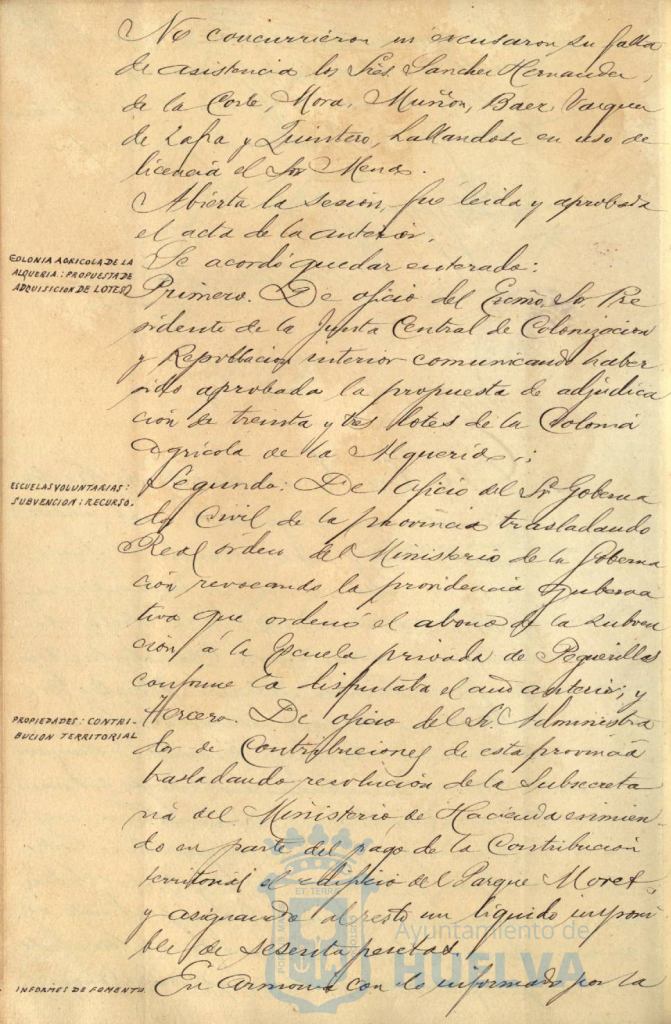 No concurrieron ni excusaron su falta
de asistencia los Sres. Sanchez Hernandez,
de la Corte, Mora, Muñoz, Baez, Vazquez
de Zafra y Quintero, hallandose en uso de
licencia el Sor Mena.
Abierta la sesion, fué leida y aprobada
el acta de la anterior.
COLONIA AGRICOLA DE LA
ALQUERIA: PROPUESTA DE
ADQUISICION DE LOTES
Se acordó quedar enterado:
Primero. De oficio del Excmo. Sr. Pre
sidente de la Junta Central de Colonizacion
y Repoblacion interior comunicando haber
sido aprobada la propuesta de adjudica
ción de treinta y tres lotes de la Colonia
Agrícola de la Alqueria;
ESCUELAS VOLUNTARIAS:
SUBVENCION: RECURSO.
Segundo: De oficio del Sr. Goberna
dor Civil de la provincia trasladando
Real órden del Ministerio de la Goberna
ción revocando la providencia guberna
tiva que ordenó el abono de la subven
ción á la Escuela privada de Peguerillas
conforme la disfrutaba el año anterior; y
PROPIEDADES: CONTRI-
BUCION TERRITORIAL
tercero. De oficio del Sr. Administra
dor de Contribuciones de esta provincia
trasladando resolución de la Subsecreta
ria del Ministerio de Hacienda eximien-
do en parte del pago de la Contribución
territorial el edificio del Parque Moret,
y asignando al resto un líquido imponi
ble de sesenta pesetas.
Ayuntamiento de
HUELVA
INFORMES DE FOMENTO.
En armonia con lo informado por la